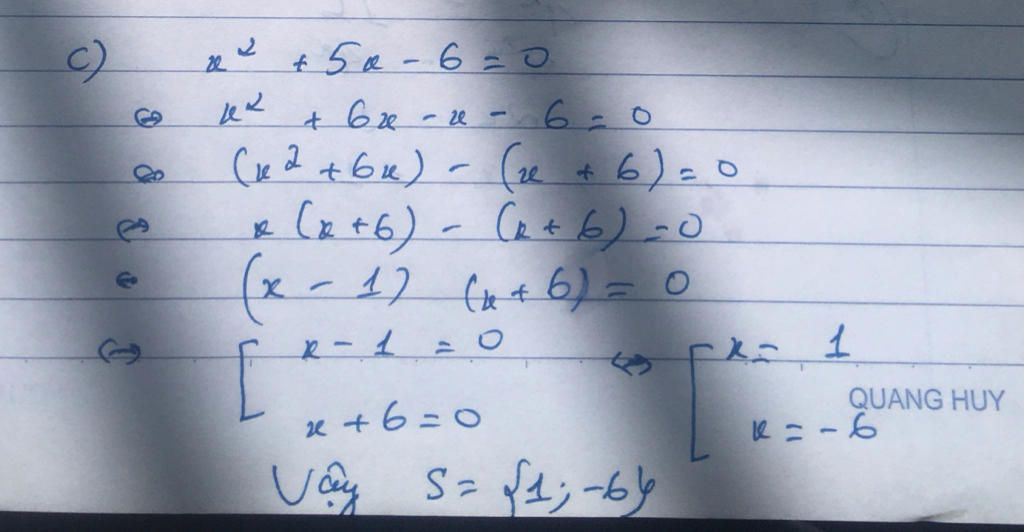 c) x² + 5x - 6 = 0
⇔ x² + 6x - x - 6 = 0
⇔ (x² + 6x) - (x + 6) = 0
⇔ x (x + 6) - (x + 6) = 0
⇔ (x - 1) (x + 6) = 0
⇔ [ x - 1 = 0 ⇔ [ x = 1
QUANG HUY
x + 6 = 0 x = -6
Vậy S = {1; -6}